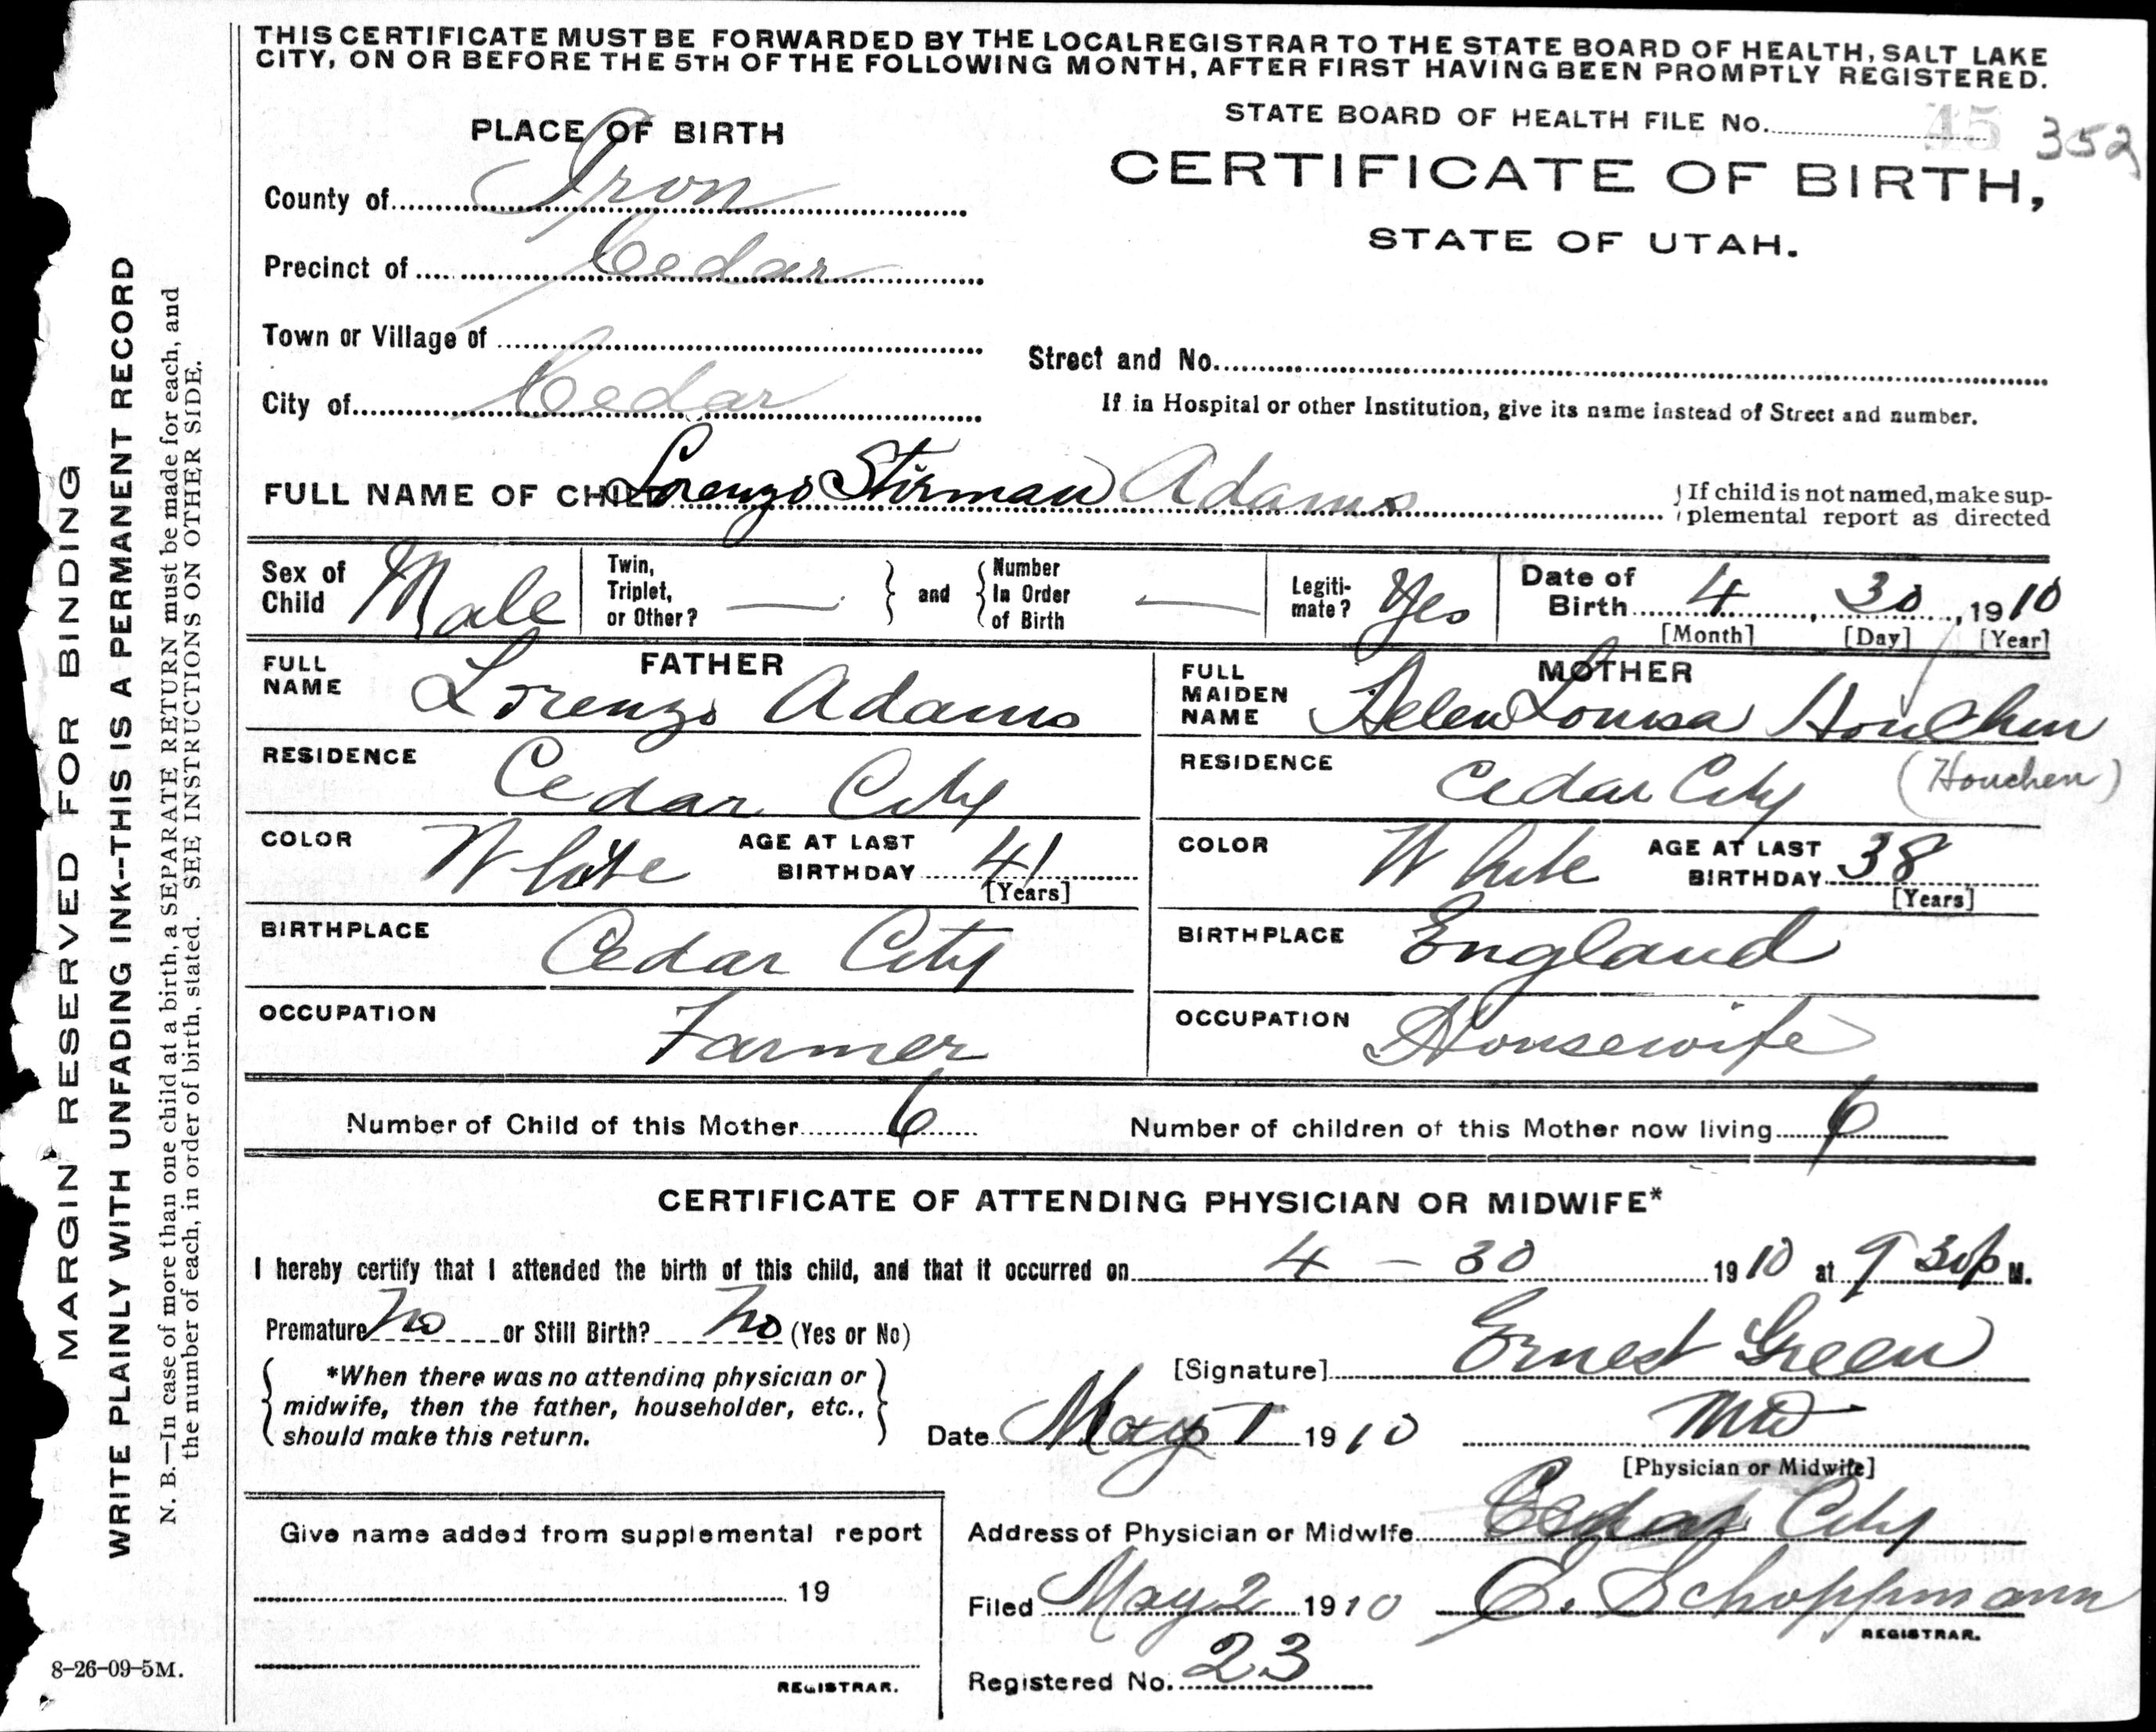 THIS CERTIFICATE MUST BE FORWARDED BY THE LOCAL REGISTRAR TO THE STATE BOARD OF HEALTH, SALT LAKE
CITY, ON OR BEFORE THE 5TH OF THE FOLLOWING MONTH, AFTER FIRST HAVING BEEN PROMPTLY REGISTERED.
STATE BOARD OF HEALTH FILE No. 45 352
PLACE OF BIRTH
CERTIFICATE OF BIRTH,
STATE OF UTAH.
County of Iron
Precinct of Cedar
Town or Village of
Street and No.
City of Cedar
If in Hospital or other Institution, give its name instead of Street and number.
FULL NAME OF CHILD Lorenzo Stirman Adams
If child is not named, make sup-
plemental report as directed
Sex of Child Male
Twin, Triplet, or Other? —
and
Number In Order of Birth —
Legiti-mate? Yes
Date of Birth 4, 30, 1910
[Month] [Day] [Year]
FATHER
FULL NAME Lorenzo Adams
RESIDENCE Cedar City
COLOR White AGE AT LAST BIRTHDAY 41
[Years]
BIRTHPLACE Cedar City
OCCUPATION Farmer
MOTHER
FULL MAIDEN NAME Helen Louisa Houchin
RESIDENCE Cedar City (Houchen)
COLOR White AGE AT LAST BIRTHDAY 38
[Years]
BIRTHPLACE England
OCCUPATION Housewife
Number of Child of this Mother 6
Number of children of this Mother now living 6
CERTIFICATE OF ATTENDING PHYSICIAN OR MIDWIFE*
I hereby certify that I attended the birth of this child, and that it occurred on 4 - 30 1910 at 9 30 p M.
Premature No or Still Birth? No (Yes or No)
*When there was no attending physician or
midwife, then the father, householder, etc.,
should make this return.
[Signature] Ernest Green
Date May 1 1910 MD
[Physician or Midwife]
Give name added from supplemental report
19
REGISTRAR.
Address of Physician or Midwife Cedar City
Filed May 2 1910 E. Schoppmann
REGISTRAR.
Registered No. 23
MARGIN RESERVED FOR BINDING
WRITE PLAINLY WITH UNFADING INK--THIS IS A PERMANENT RECORD
N. B.—In case of more than one child at a birth, a SEPARATE RETURN must be made for each, and
the number of each, in order of birth, stated. SEE INSTRUCTIONS ON OTHER SIDE.
8-26-09-5M.